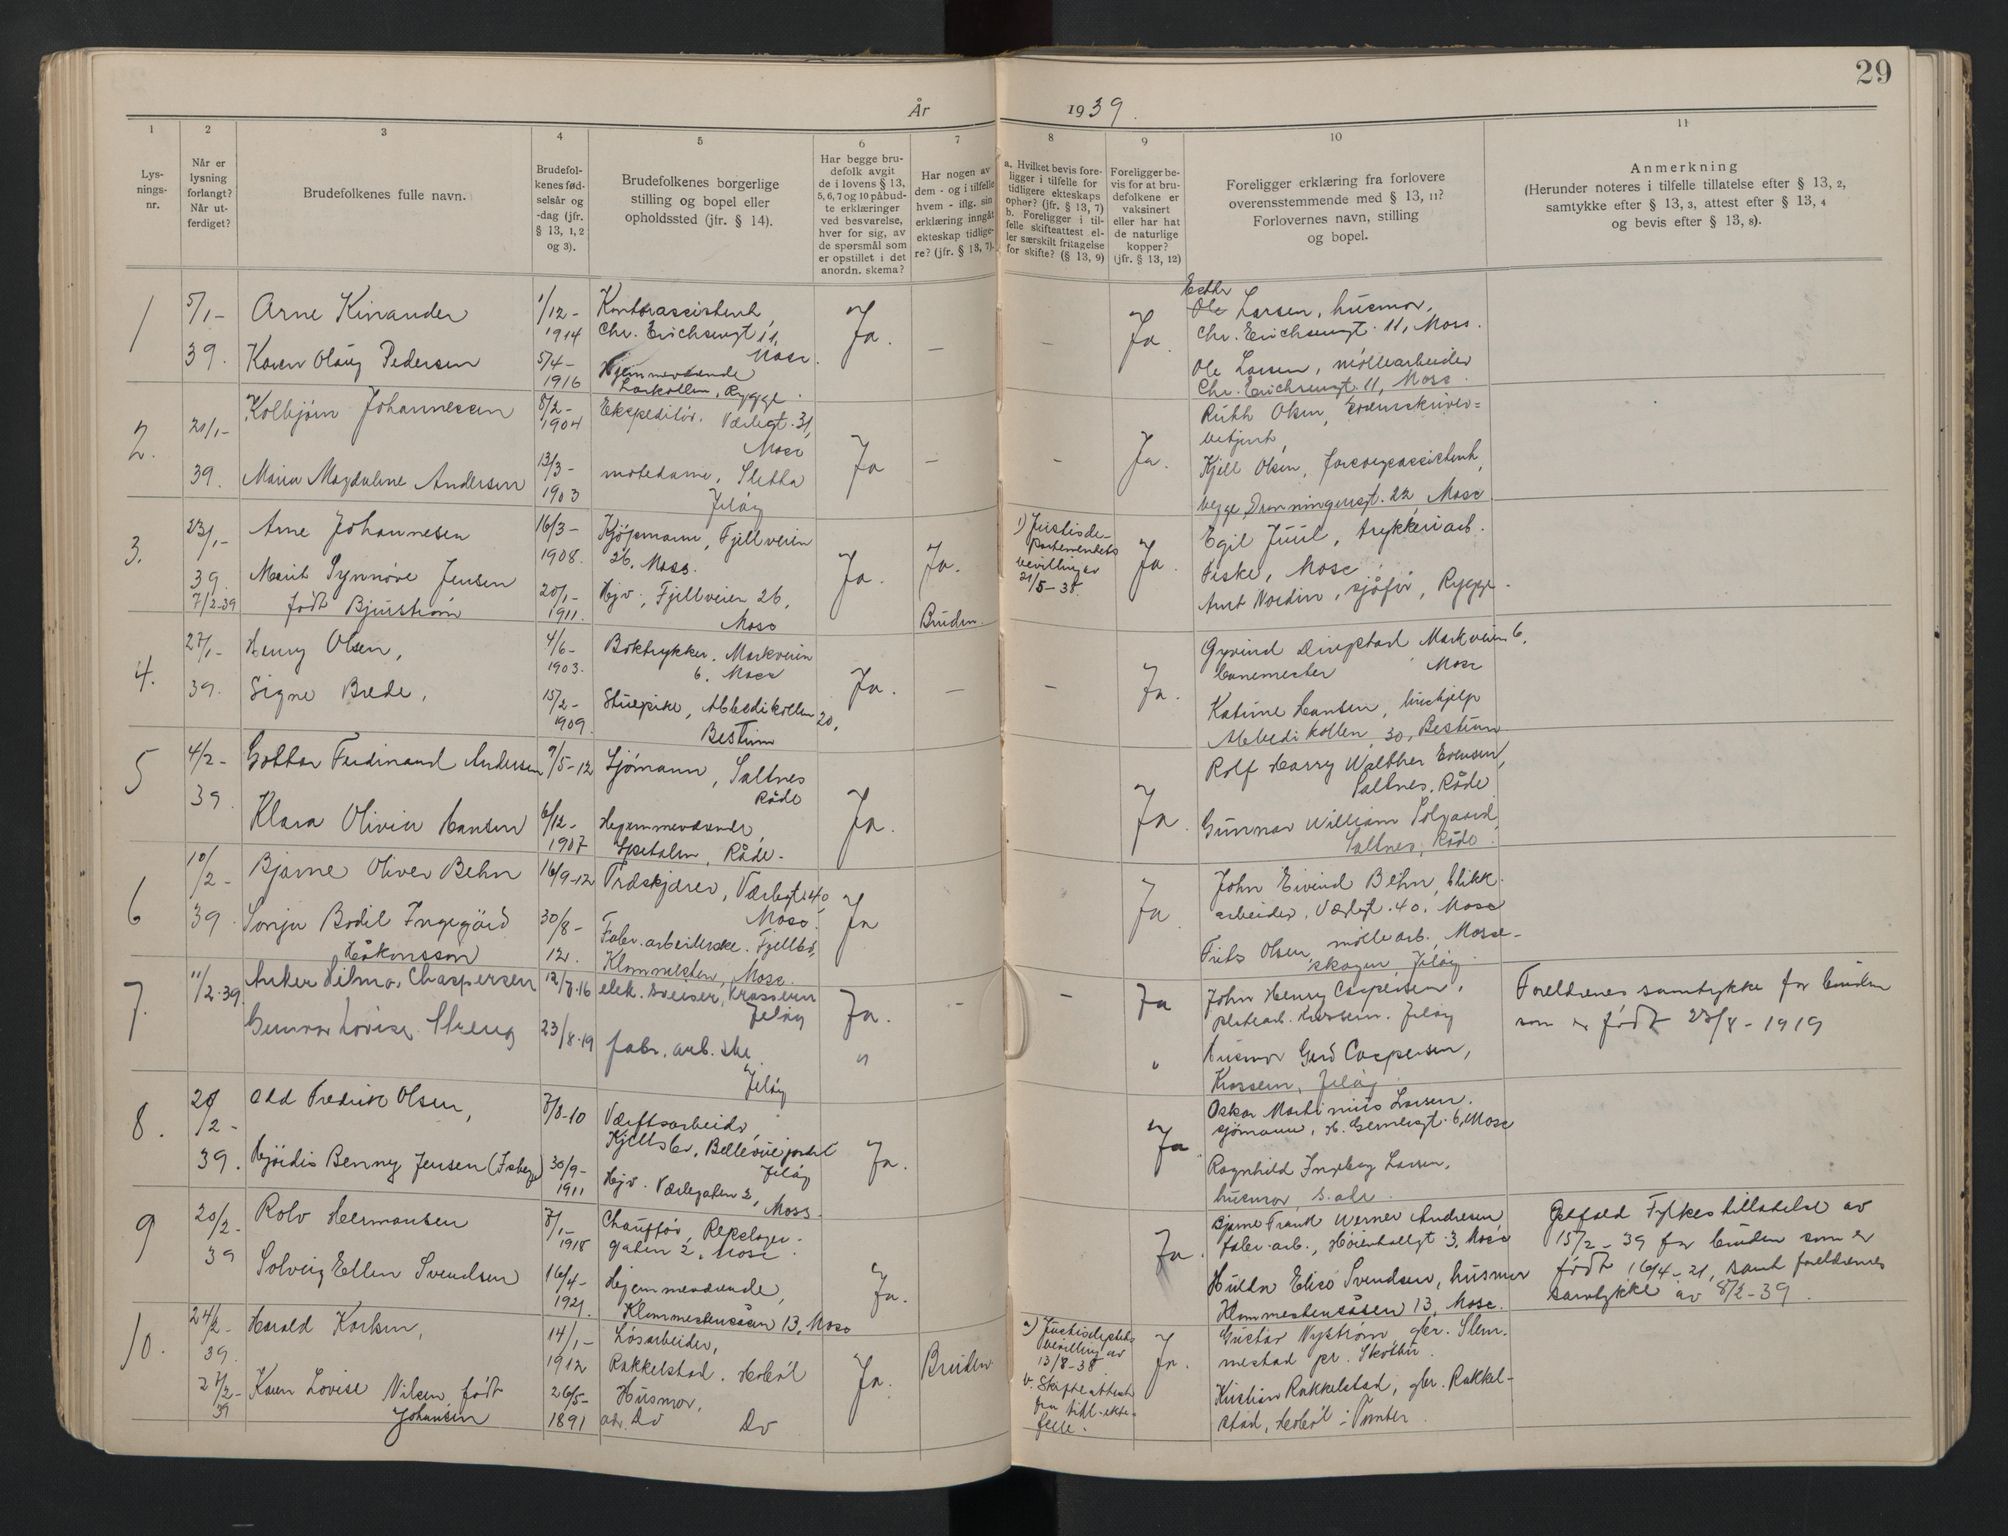 29
År 1939.
1 2 3 4 5 6 7 8 9 10 11
Lys-
nings-
nr.
Når er
lysning
forlangt?
Når ut-
ferdiget?
Brudefolkenes fulle navn.
Brudefol-
kenes fød-
selsår og
-dag (jfr.
§ 13, 1, 2
og 3).
Brudefolkenes borgerlige
stilling og bopel eller
opholdssted (jfr. § 14).
Har begge bru-
defolk avgit
de i lovens § 13,
5, 6, 7 og 10 påbud-
te erklæringer
ved besvarelse,
hver for sig, av
de spørsmål som
er opstillet i det
anordn. skema?
Har nogen av
dem - og i tilfelle
hvem - iflg. sin
erklæring inngått
ekteskap tidlige-
re? (jfr. § 13, 7).
a. Hvilket bevis fore-
ligger i tilfelle for
tidligere ekteskaps
ophør? (jfr. § 13, 7)
b. Foreligger i til-
felle skifteattest el-
ler særskilt fritagelse
for skifte? (§ 13, 9)
Foreligger be-
vis for at bru-
defolkene er
vaksinert
eller har hat
de naturlige
kopper?
(jfr. § 13, 12)
Foreligger erklæring fra forlovere
overensstemmende med § 13, 11?
Forlovernes navn, stilling
og bopel.
Anmerkning
(Herunder noteres i tilfelle tillatelse efter § 13, 2,
samtykke efter § 13, 3, attest efter § 13, 4
og bevis efter § 13, 8).
1
5/1-
39.
Arne Kinander
Karen Olaug Pedersen
1/12-
1914
5/4-
1916
Kontorassistent,
Chr. Erichsensgt 11,
Moss.
Hjemmeværende
Larkollen, Rygge.
Ja.
-
-
Ja.
Larsen, husmor,
Chr. Erichsensgt. 11, Moss.
Ole Larsen, møllearbeider
Chr. Erichsensgt. 11, Moss.
2.
21/1-
39.
Kolbjørn Johannessen
Maria Magdalene Andersen
8/2-
1904
13/3-
1903
Ekspeditør. Værlegt. 31,
Moss
motedame, Sletta
Jeløy
Ja
-
-
Ja.
Ruth Olsen,
betjent,
Kjell Olsen,
begge Dronningensgt. 22, Moss.
3.
23/1-
39.
7/2-39
Arne Johannesen
Marit Synnøve Jensen
født Bjurstrøm
16/3-
1908.
20/1-
1911.
Kjøpmann, Fjellveien
26, Moss.
Hjv., Fjellveien 26,
Moss
Ja.
Ja.
Bruden.
1) Justisde-
partementets
bevilling av
21/5-38.
Ja.
Egil Juul, trykkeriarb.
Moss
Arnt Nordin, sjåfør, Rygge.
4.
27/1-
39.
Henry Olsen,
Signe Brede,
4/6-
1903.
15/2-
1909.
Boktrykker, Markveien
6, Moss
Stuepike, Abbedikollen 20,
Bestum
Ja.
-
-
Ja.
Øyvind Markveien 6,
banemester Moss
Katrine Hansen, hushjelp
Abbedikollen, 30, Bestum
5
4/2-
39.
Gotthar Ferdinand Andersen
Klara Olivia Hansen
9/5-12
6/12-
1907
Sjømann, Saltnes
Råde
Hjemmeværende,
Spetalen, Råde.
Ja.
Ja.
Rolf Harry Walther Evensen,
Saltnes, Råde
Gunnar William Solgaard,
Saltnes, Råde.
6
10/2-
39.
Bjarne Oliver Behn
Sonja Bodil Ingegjerd
Håkonsson
16/9-12
30/8-
12.
Træskjærer, Værlegt 40,
Moss.
Fabr. arbeiderske. Fjellbo,
Klommesten, Moss.
Ja
Ja
John Eivind Behn, blikk.
arbeider. Værlegt. 40, Moss
Frits Olsen, møllearb., Mosse-
skogen, Jeløy.
7.
11/2-39.
Anker Hilmar Chaspersen
Gunvor Lovise Streng
12/8-16
23/8-19
elek. sveiser, Krossern
Jeløy
fabr. arb. ske
Jeløy
Ja.
"
-
-
Ja
"
John Henry Caspersen,
Krossern. Jeløy
Husmor Gerd Caspersen,
Krossern, Jeløy.
Foreldrenes samtykke for bruden
som er født 23/8-1919
8.
20/2-
39.
Odd Fredrik Olsen,
Hjørdis Benny Jensen (Isberg)
7/8-10
30/9-
1911
Værftsarbeider,
Kjellsbo, Bellevuejordet
Jeløy
Hjv. Værlegaten 2,
Moss.
Ja.
Ja.
Oskar Martinius Larsen.
sjømann, H. Gernersgt. 6, Moss
Ragnhild Ingeborg Larsen,
husmor, s. adr.
9
20/2-
39
Rolv Hermansen
Solveig Ellen Svendsen
7/1-
1918
16/4-
1921.
Chauffør, Repslager-
gaten 2, Moss.
Hjemmeværende,
Klommestensåsen 13, Moss
Ja.
Ja.
Bjarne Frank Werner Andresen
fabr. arb., Høienhallgt. 3, Moss
Hulda Elise Svendsen, husmor
Klommestensåsen 13, Moss.
Østfold Fylkes tillatelse av
15/2-39 for bruden som er
født 16/4-21, samt foreldrenes
samtykke av 8/2-39.
10.
24/2-
39.
27/2-
39
Harald Karlsen,
Karen Lovise Nilsen, født
Johansen
14/1-
1912
26/5-
1891
Løsarbeider,
Rakkelstad, Hobøl
Husmor,
adr. Do Do
Ja.
Bruden
a) Justisdeptets
bevilling av
13/8-38
b. Skifteattest
fra tidl. ekte-
felle.
Ja.
Gustav Nystrøm, gbr. Slem-
mestad pr. Skotbu.
Kristian Rakkelstad, gbr. Rakkel-
stad, Hobøl i Tomter.